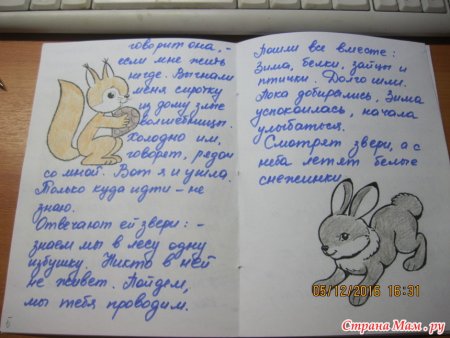 говорит она, -
если мне жить
негде. Выгнали
меня сиротку
из дому злые
волшебницы.
Холодно им,
говорят, рядом
со мной. Вот я и ушла.
Только куда идти - не
знаю.
Отвечают ей звери: -
знаем мы в лесу одну
избушку. Никто в ней
не живет. Пойдем,
мы тебя проводим.
6
Пошли все вместе:
Зима, белки, зайцы и
птички. Долго шли.
Пока добирались, Зима
успокоилась, начала
улыбаться.
Смотрят звери, а с
неба летят белые
снежинки
05/12/2016 18:31
Страна Мам.ру